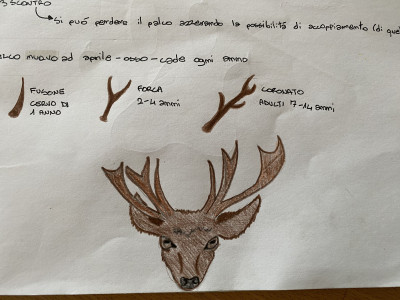 SCONTRO
Si può perdere il palco azzerando la possibilità di accoppiamento (di que
lco nuovo ad aprile - osso - cade ogni anno
FUSONE
CERVO DI
1 ANNO
FORCA
2-4 anni
CORONATO
ADULTI 7-14 anni